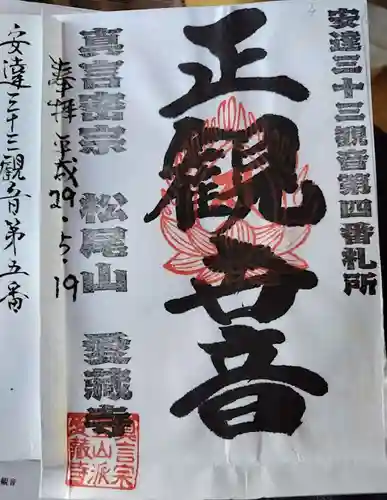 安達三十三観音第四番札所
正觀世音
奉拝 平成29.5.19
真言密宗 松尾山 愛蔵寺
真言宗
山派
蔵寺
安達三十三觀音第五番
觀音